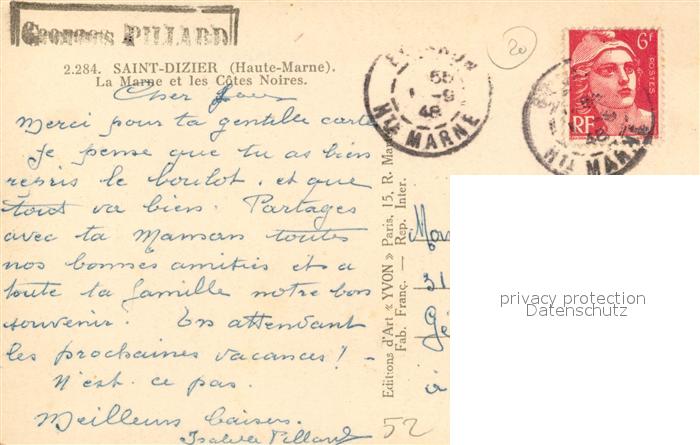 Georges PILLARD
2.284. SAINT-DIZIER (Haute-Marne).
La Marne et les Côtes Noires.
Cher
Merci pour ta gentille carte
Je pense que tu as bien
repris le boulot, et que
tout va bien. Partages
avec ta Maman toutes
nos bonnes amitiés et a
toute ta famille notre bon
souvenir. En attendant
les prochaines vacances! -
N'est ce pas.
Meilleurs baisers.
Pillard
Editions d'Art "YVON" Paris, 15, R. Mar
Fab. Franç. — Rep. Inter.
20
-9
48
HTE MARNE
6F
POSTES
RF
48
HTE MARNE
31
Gé
à
52
privacy protection
Datenschutz